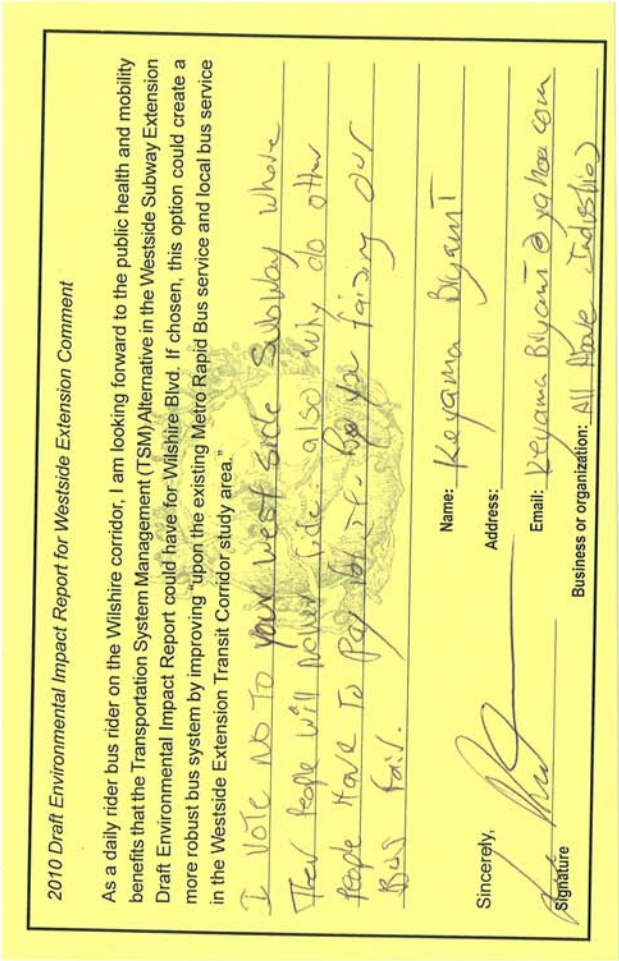 2010 Draft Environmental Impact Report for Westside Extension Comment
As a daily rider bus rider on the Wilshire corridor, I am looking forward to the public health and mobility
benefits that the Transportation System Management (TSM) Alternative in the Westside Subway Extension
Draft Environmental Impact Report could have for Wilshire Blvd. If chosen, this option could create a
more robust bus system by improving "upon the existing Metro Rapid Bus service and local bus service
in the Westside Extension Transit Corridor study area."
I Vote No To your west side Subway Whole
Ther People will never ride. also why do other
People Have To Pay for it by you fairing our
Bus fair.
Sincerely,
Name: Keyama Bryant
Address:
Email: Keyama Bryant@yahoo com
Signature
Business or organization: All Above Industries